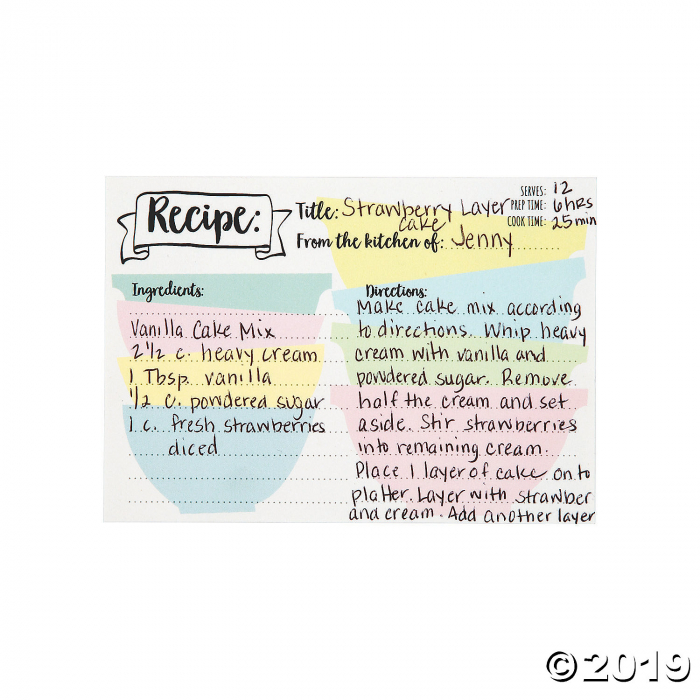 Recipe:
Title: Strawberry Layer
cake
From the kitchen of: Jenny
SERVES: 12
PREP TIME: 6 hrs
COOK TIME: 25 min
Ingredients:
Vanilla Cake Mix
2 1/2 c. heavy cream
1 Tbsp vanilla
1/2 c. powdered sugar
1 c. fresh strawberries
diced
Directions:
Make cake mix according
to directions. Whip heavy
cream with vanilla and
powdered sugar. Remove
half the cream and set
aside. Stir strawberries
into remaining cream.
Place 1 layer of cake on to
platter. Layer with strawber
and cream. Add another layer
©2019